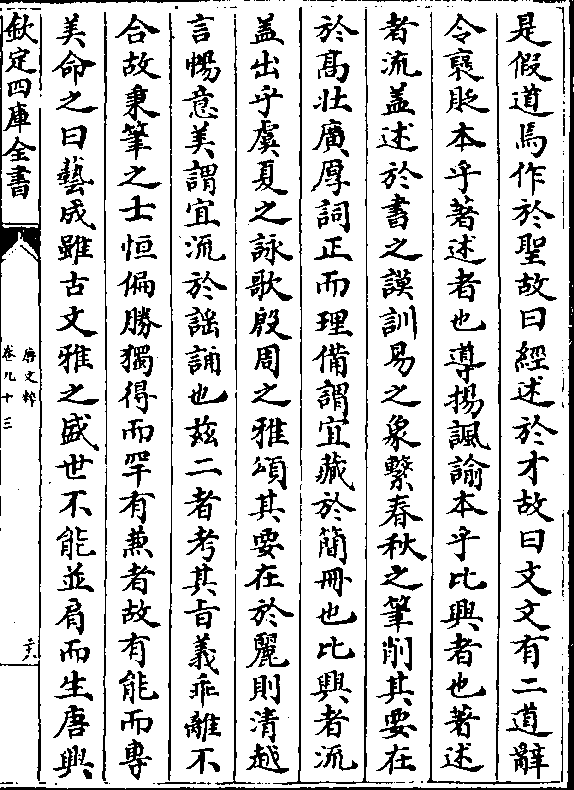 是假道焉作於聖故曰經述於才故曰文文有二道辭
令襃貶本乎著述者也導揚諷諭本乎比興者也著述
者流盖述於書之謨訓易之象繫春秋之筆削其要在
於髙壯廣厚詞正而理備謂宜藏於簡冊也比興者流
盖出乎虞夏之詠歌殷周之雅頌其要在於麗則清越
言暢意美謂宜流於謡誦也兹二者考其旨義乖離不
合故秉筆之士恒偏勝獨得而罕有兼者故有能而專
美命之曰藝成雖古文雅之盛世不能並肩而生唐興
欽定四庫全書
唐文粹
卷九十三